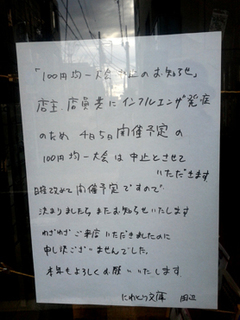 「100円均一大会中止のお知らせ」
店主、店員共にインフルエンザ発症
のため 4日5日開催予定の
100円均一大会は中止とさせて
いただきます
日を改めて開催予定ですので
決まりましたらまたお知らせいたします
わざわざご来店いただきましたのに
申し訳ございませんでした。
本年もよろしくお願いいたします
にわとり文庫 田辺